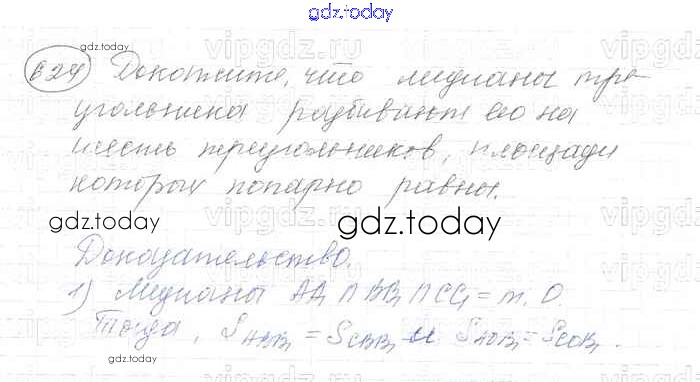 gdz.today
vipgdz.ru
gdz.today
624 Докажите, что медианы тре-
угольника разбивают его на
шесть треугольников, площади
которых попарно равны.
gdz.today
gdz.today
gdz.today
Доказательство.
1) Медианы AA₁ ∩ BB₁ ∩ CC₁ = т. O.
Тогда, S_ABB₁ = S_CBB₁ и S_AOB₁ = S_COB₁.
gdz.today